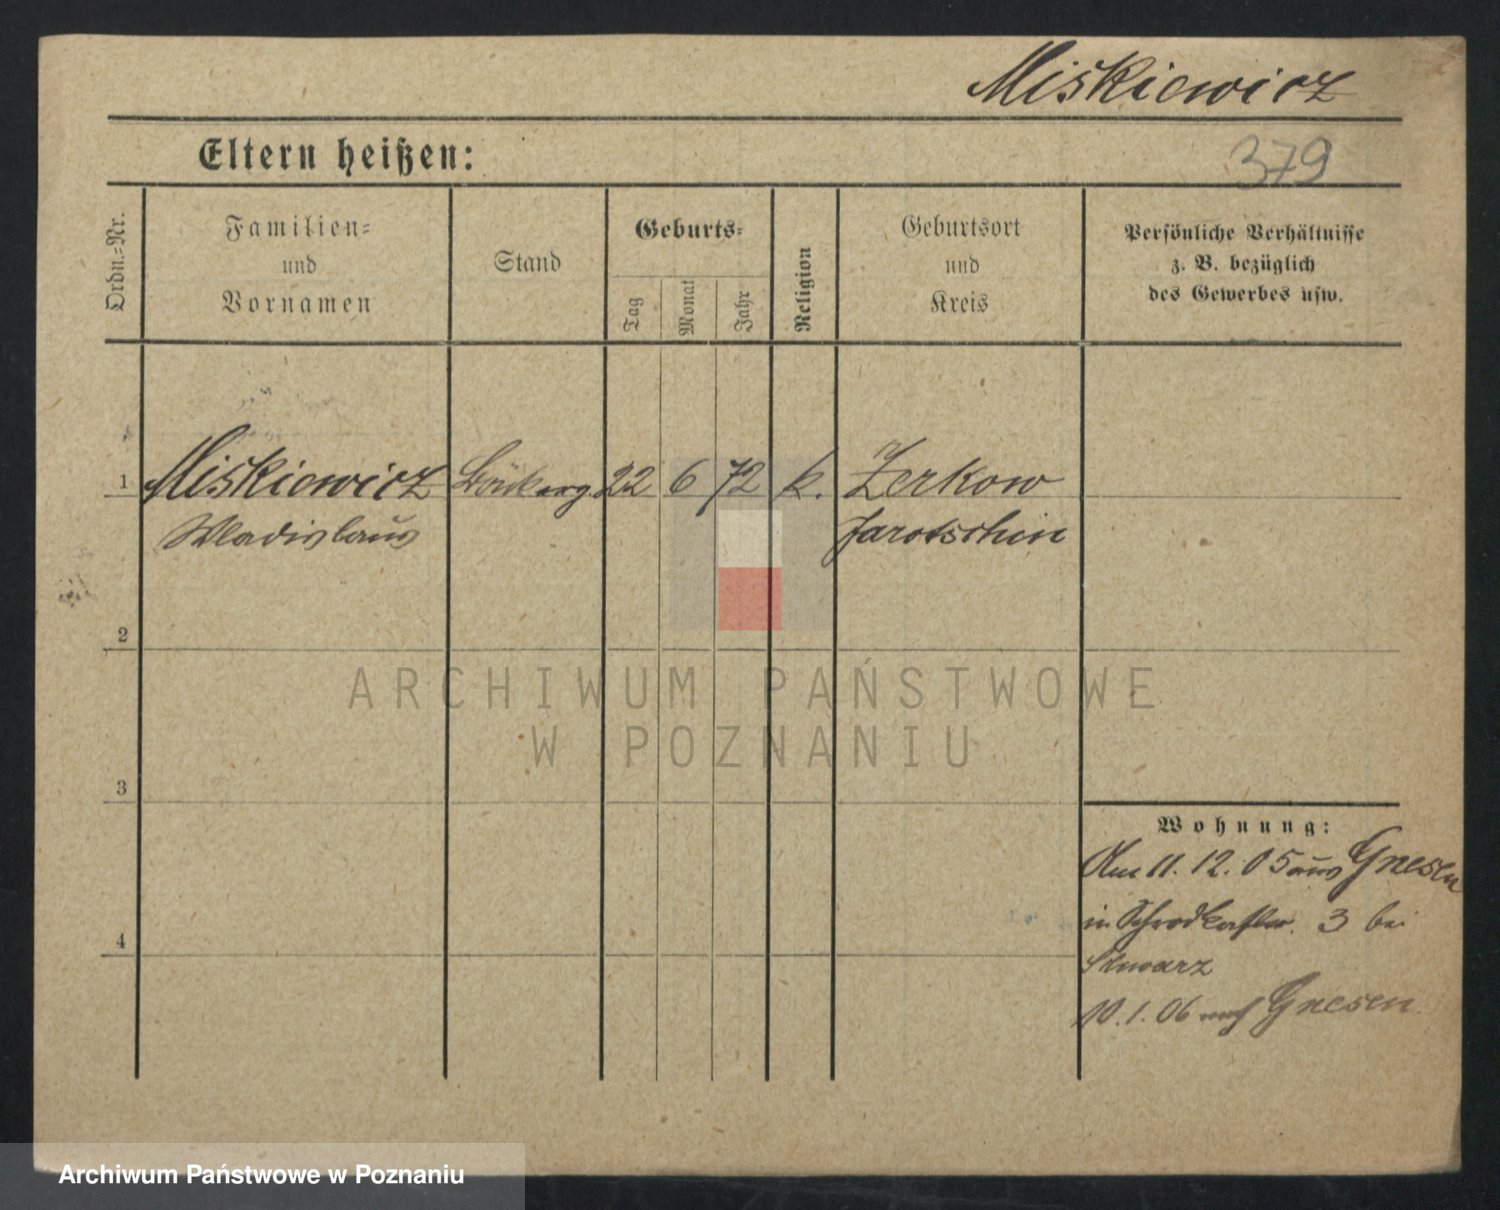 Miśkiewicz
Eltern heißen:
379
Ordn.=Nr.
Familien=
und
Vornamen
Stand
Geburts=
Tag
Monat
Jahr
Religion
Geburtsort
und
Kreis
Persönliche Verhältnisse
z. B. bezüglich
des Gewerbes usw.
1 Miśkiewicz 22 6 72 k. Zerkow
Wladislaus Jarotschin
2
3
4
ARCHIWUM PAŃSTWOWE
W POZNANIU
Wohnung:
Am 11. 12. 05 aus Gnesen
in 3 bei
10.1.06 nach Gnesen
Archiwum Państwowe w Poznaniu